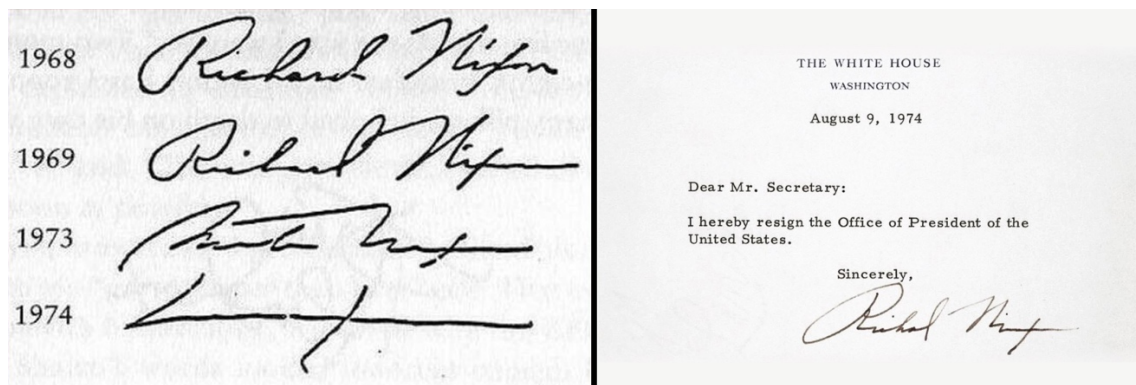 1968 Richard Nixon
1969 Richard Nixon
1973
1974
THE WHITE HOUSE
WASHINGTON
August 9, 1974
Dear Mr. Secretary:
I hereby resign the Office of President of the
United States.
Sincerely,
Richard Nixon